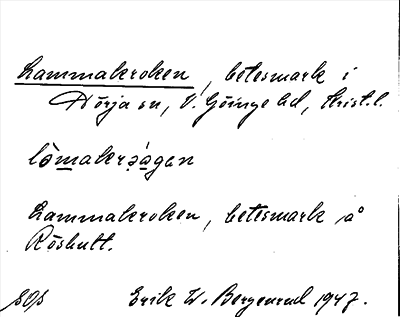 Lammakroken, betesmark i
Nörja sn, V. Göinge hd, Krist. l.
lòmakrə́agen
Lammakroken, betesmark på
Röshult.
SOS Erik W. Bergenrud 1947.